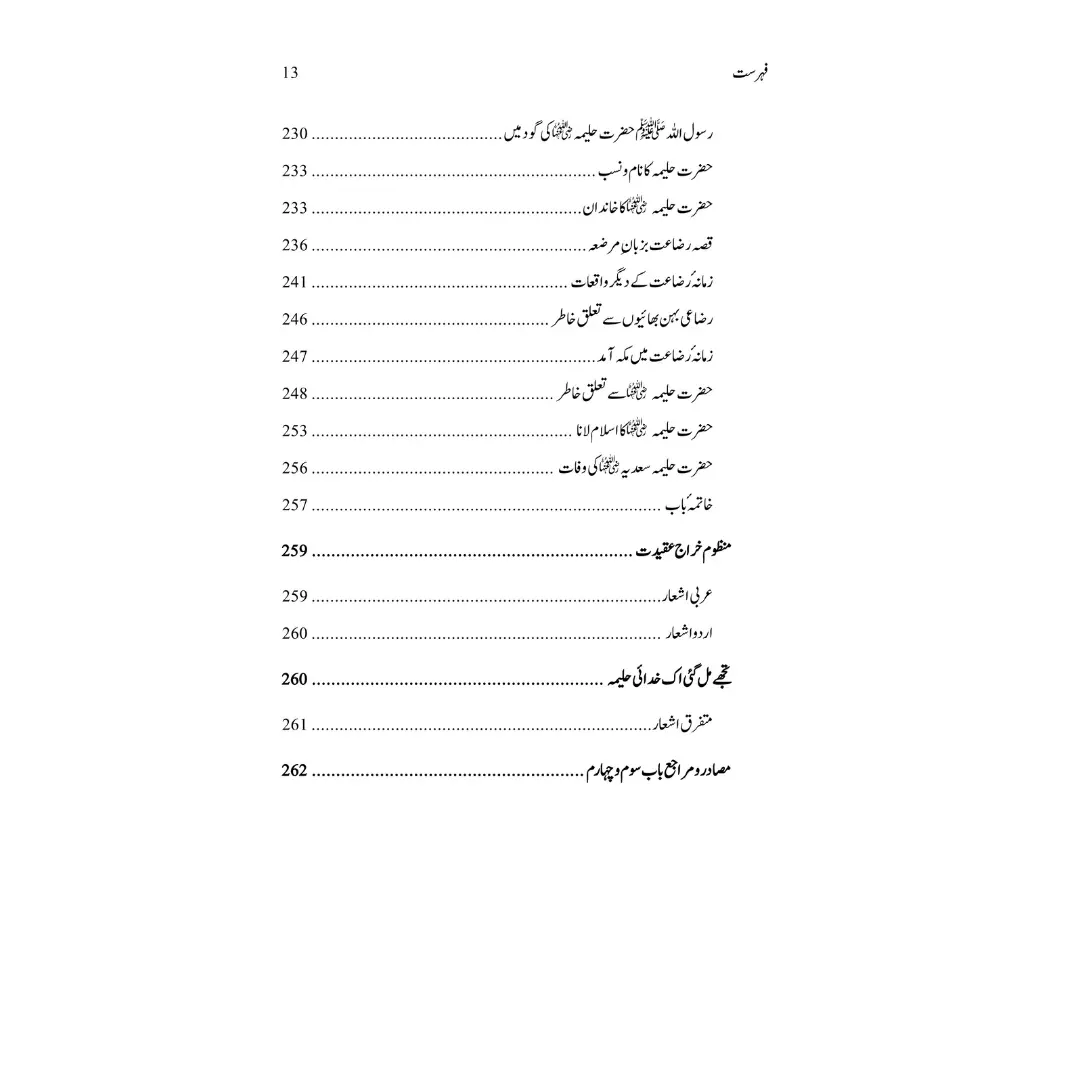 فہرست 13
رسول اللہ ﷺ حضرت حلیمہ رضی اللہ عنہا کی گود میں ........................................ 230
حضرت حلیمہ کا نام و نسب ............................................................ 233
حضرت حلیمہ رضی اللہ عنہا کا خاندان ......................................................... 233
قصہ رضاعت بزبانِ مرضعہ .......................................................... 236
زمانۂ رضاعت کے دیگر واقعات ...................................................... 241
رضاعی بہن بھائیوں سے تعلق خاطر .................................................. 246
زمانۂ رضاعت میں مکہ آمد ............................................................ 247
حضرت حلیمہ رضی اللہ عنہا سے تعلق خاطر ................................................... 248
حضرت حلیمہ رضی اللہ عنہا کا اسلام لانا ....................................................... 253
حضرت حلیمہ سعدیہ رضی اللہ عنہا کی وفات ................................................... 256
خاتمۂ باب .......................................................................... 257
منظوم خراج عقیدت .................................................................. 259
عربی اشعار .......................................................................... 259
اردو اشعار .......................................................................... 260
تجھے مل گئی اک خدائی حلیمہ ............................................................ 260
متفرق اشعار ........................................................................ 261
مصادر و مراجع باب سوم و چہارم ........................................................ 262